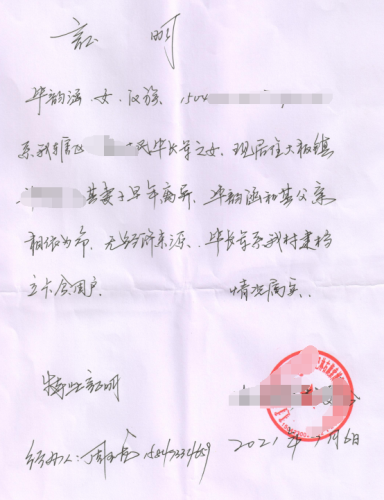 証 明
华韵涵 女.汉族. 1504
系我辖区 民华长军之女.现居住大板镇
其妻子早年离异.华韵涵和其父亲
相依为命.无经济来源.华长军系我村建档
立卡贫困户. 情况属实.
特此証明
经办人:周 15847334659 2021年 月6日